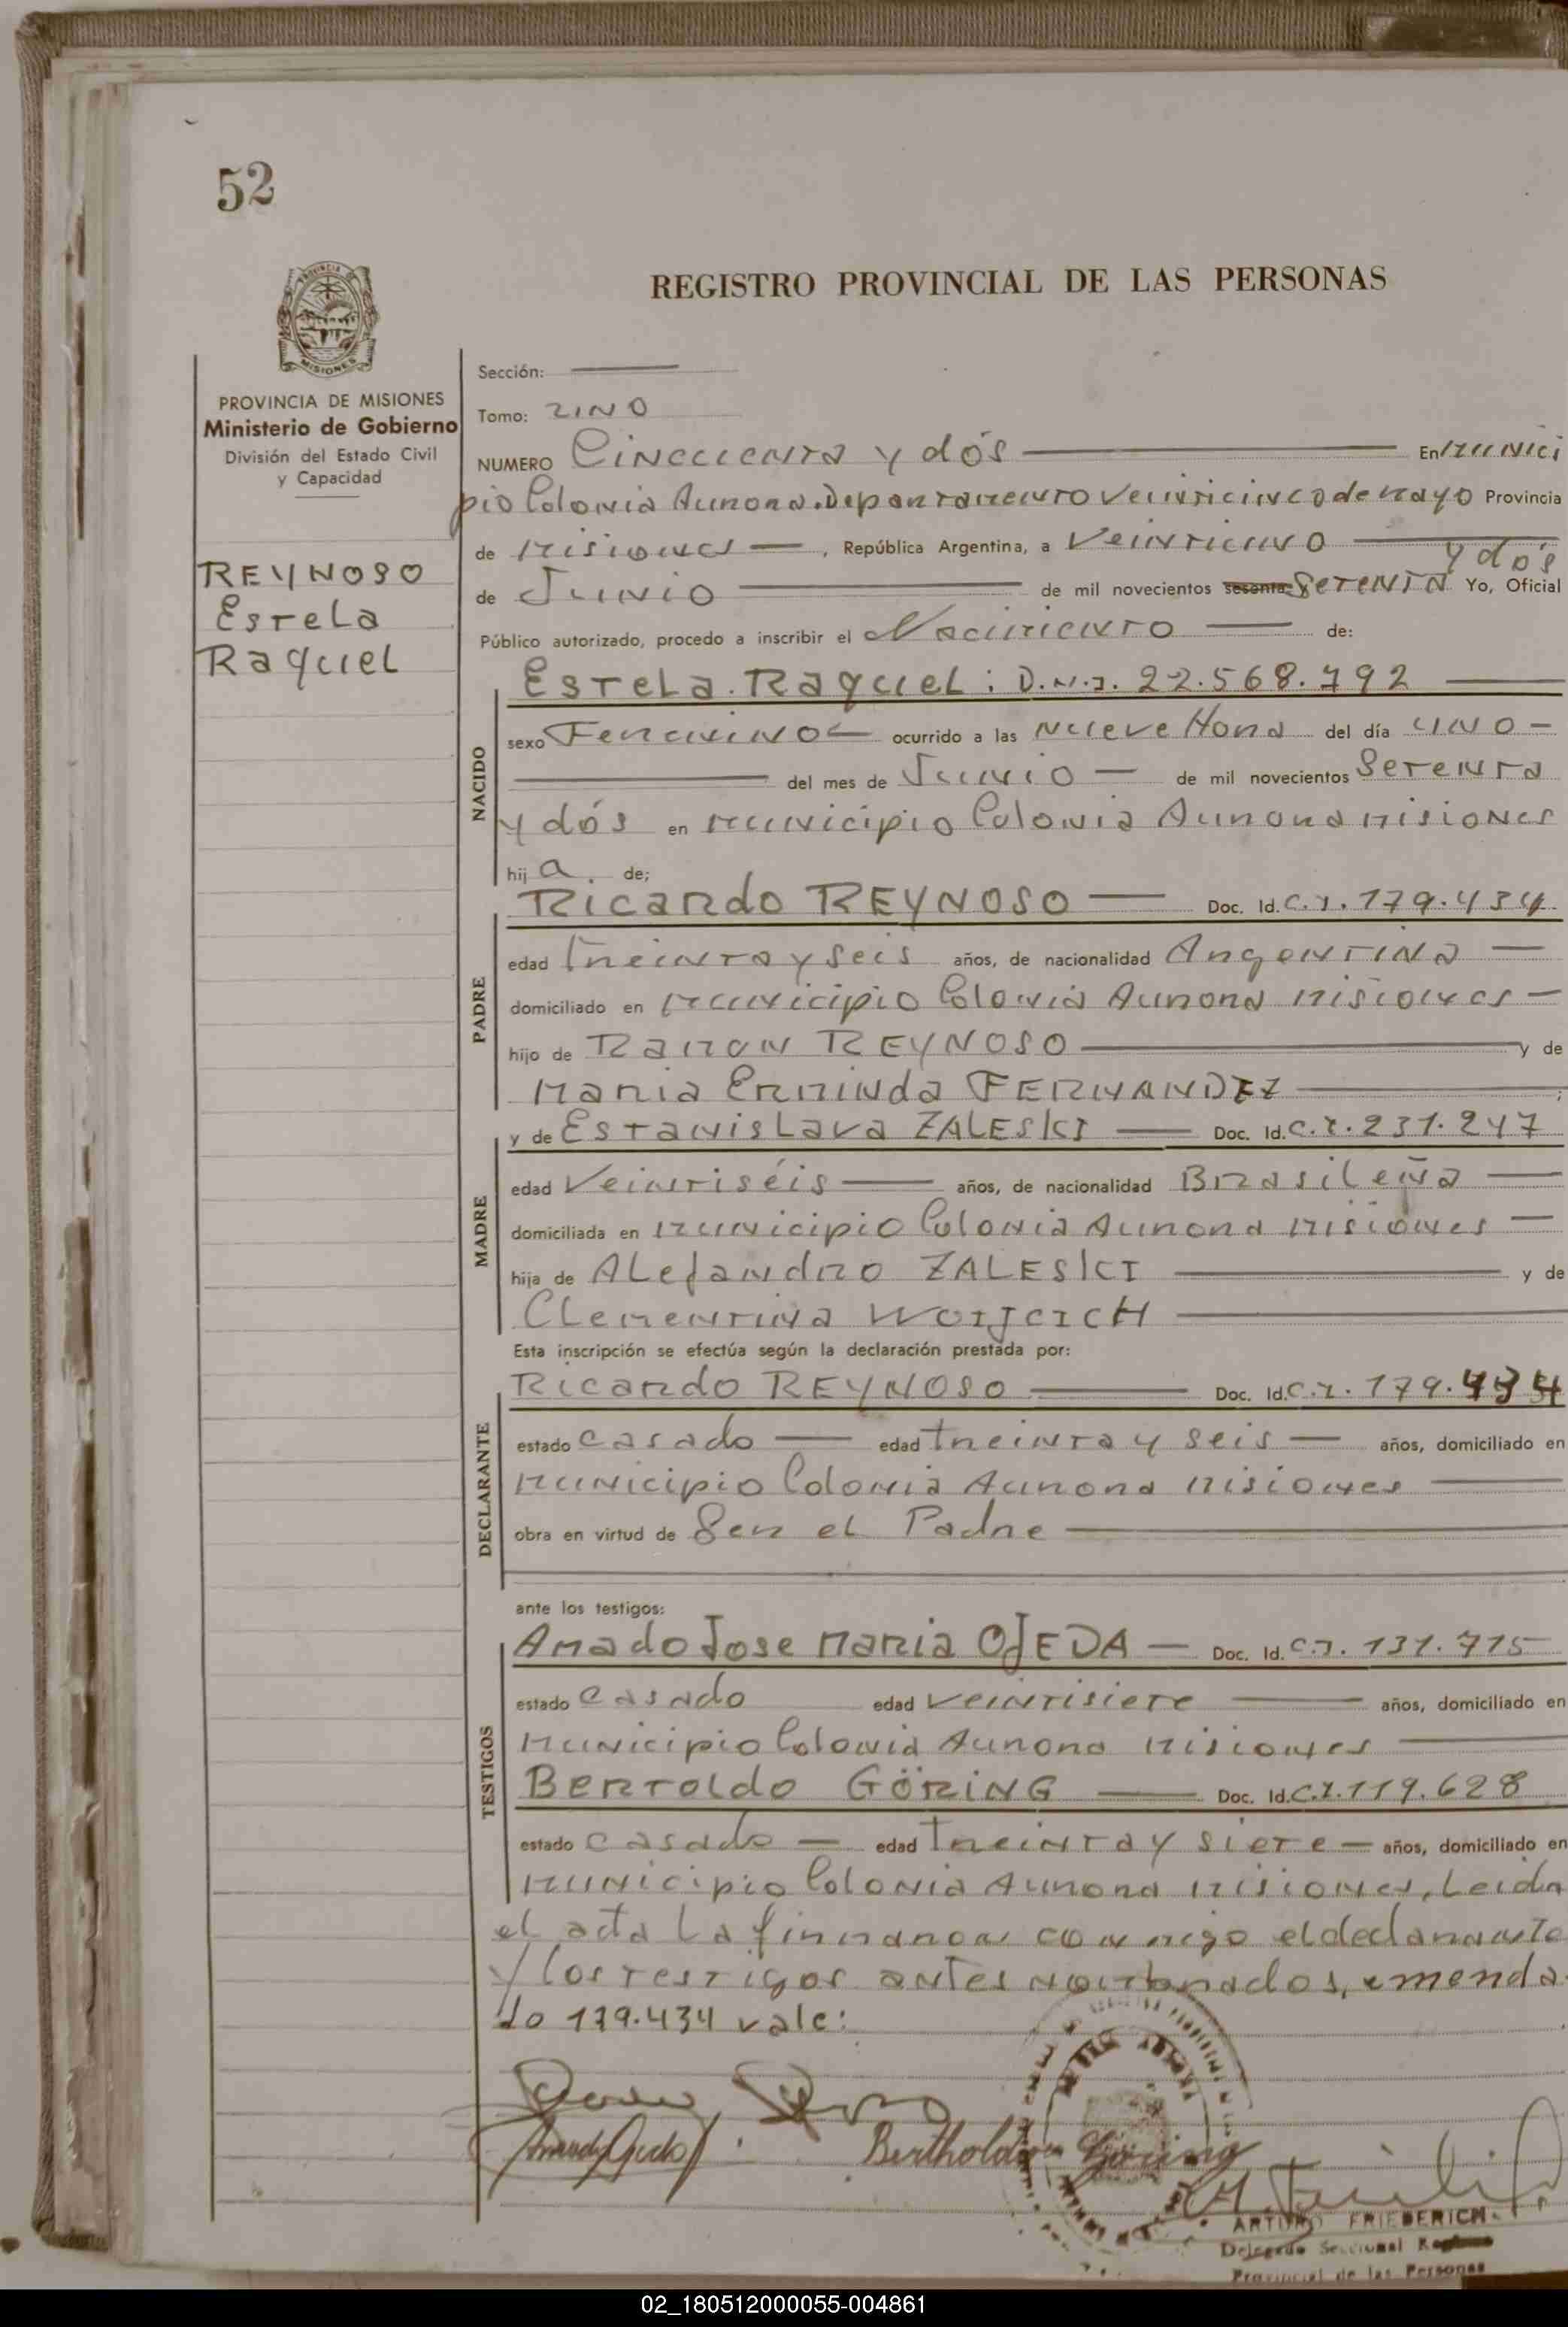 52
REGISTRO PROVINCIAL DE LAS PERSONAS
PROVINCIA DE MISIONES
Ministerio de Gobierno
División del Estado Civil
y Capacidad
REYNOSO
Estela
Raquel
Sección: —
Tomo: UNO
NUMERO Cincuenta y dós — En Munici
pio Colonia Aurora. Departamento Veinticinco de Mayo Provincia
de Misiones —, República Argentina, a Veintiuno — y dós
de Junio — de mil novecientos sesenta y Setenta Yo, Oficial
Público autorizado, procedo a inscribir el Nacimiento — de:
NACIDO
Estela. Raquel: D.N.I. 22.568.792 —
sexo Femenino — ocurrido a las Nueve Hora del día UNO —
— del mes de Junio — de mil novecientos Setenta
y dós en Municipio Colonia Aurora Misiones
hij a. de;
PADRE
Ricardo REYNOSO — Doc. Id. C.I. 179.434
edad Treinta y seis años, de nacionalidad Argentina —
domiciliado en Municipio Colonia Aurora Misiones —
hijo de Ramon REYNOSO — y de
Maria Erminda FERNANDEZ — ;
MADRE
y de Estanislava ZALESKI — Doc. Id. C.I. 231.247
edad Veintiséis — años, de nacionalidad Brasileña —
domiciliada en Municipio Colonia Aurora Misiones —
hija de Alejandro ZALESKI — y de
Clementina WOIJCICH —
Esta inscripción se efectúa según la declaración prestada por:
DECLARANTE
Ricardo REYNOSO — Doc. Id. C.I. 179.434
estado casado — edad treinta y seis — años, domiciliado en
Municipio Colonia Aurora Misiones —
obra en virtud de Ser el Padre —
ante los testigos:
TESTIGOS
Amado Jose Maria OJEDA — Doc. Id. C.I. 131.715
estado casado edad veintisiete — años, domiciliado en
Municipio Colonia Aurora Misiones —
Bertoldo GÖRING — Doc. Id. C.I. 119.628
estado casado — edad Treinta y siete — años, domiciliado en
Municipio Colonia Aurora Misiones, Leida
el acta la firmaron conmigo el declarante
y los testigos antes nombrados, emenda-
do 179.434 vale:
Berthold Göring
ARTURO FRIEDERICH
Delegado Seccional Registro
Provincial de las Personas
02_180512000055-004861